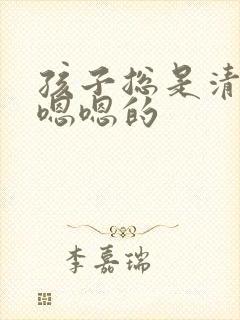 孩子总是清
嗯嗯的
李嘉瑞